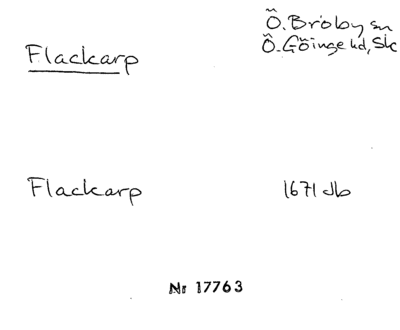 Ö. Broby sn
Flackarp
Ö. Göinge hd, Sk
Flackarp 1671 Jb
Nr 17763